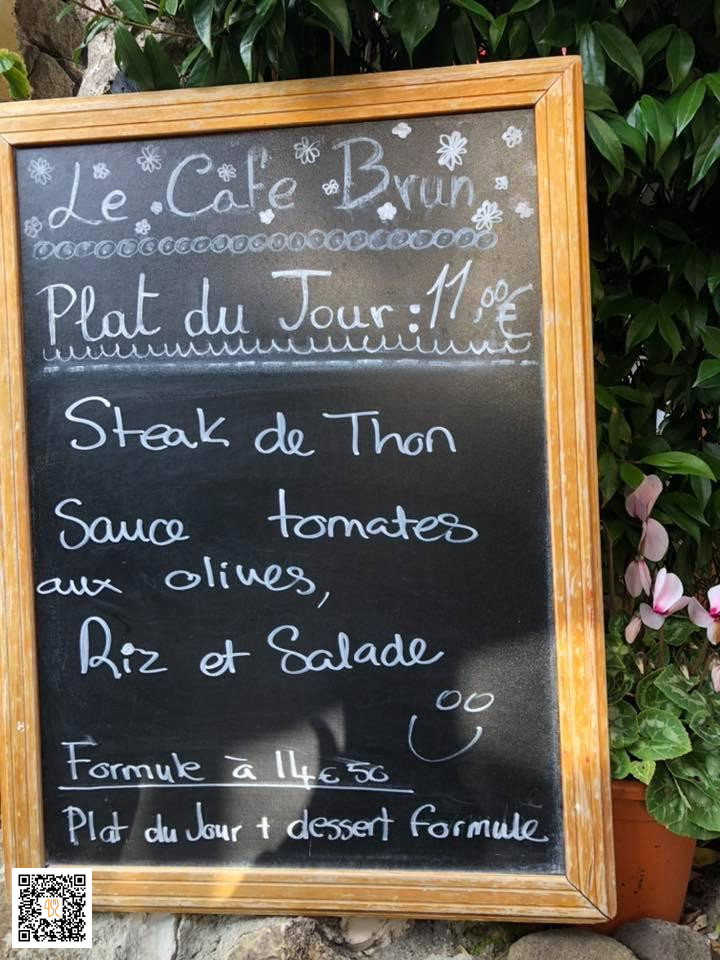 Le Cafe Brun
Plat du Jour : 11,00€
Steak de Thon
Sauce tomates
aux olives,
Riz et Salade
Formule à 14€50
Plat du Jour + dessert formule